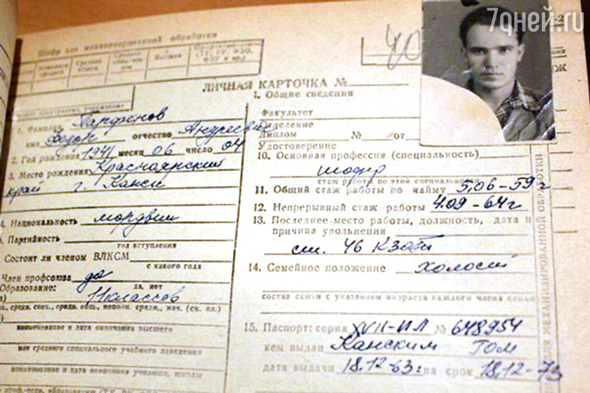 7дней.ru
Шифр для механизированной обработки
ЛИЧНАЯ КАРТОЧКА №
1. Фамилия Парфенов
имя Федор отчество Андреевич
2. Год рождения 1941 месяц 06 число 04
3. Место рождения Красноярский
край г. Канск
4. Национальность мордвин
5. Партийность
год вступления
Состоит ли членом ВЛКСМ
с какого года
Член профсоюза да
да, нет
Образование:
а) 11 классов
наименование и дата окончания высшего
или среднего специального учебного заведения
1. Общие сведения
Факультет
Отделение
Диплом № от
Удостоверение
10. Основная профессия (специальность)
шофер
стаж работы по этой специальности
11. Общий стаж работы по найму 5.06-59г
12. Непрерывный стаж работы 4.09-64г
13. Последнее место работы, должность, дата и
причина увольнения
ст. 46 КЗОТа
14. Семейное положение холост
состав семьи с указанием возраста каждого члена семьи
15. Паспорт: серия XVII-ИЛ № 648954
кем выдан Канским ГОМ
дата выдачи 18.12-63г на срок 18.12-73
МЕХАНИЗИРОВАННОЙ ОБРАБОТКИ